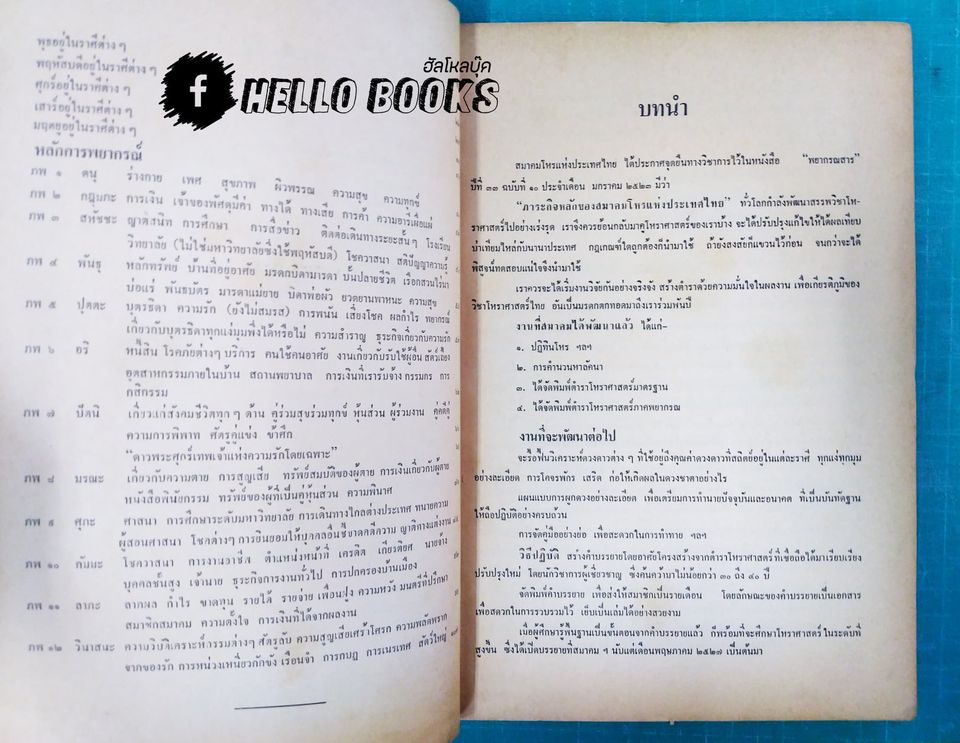 พุธอยู่ในราศีต่าง ๆ
พฤหัสบดีอยู่ในราศีต่าง ๆ
ศุกร์อยู่ในราศีต่าง ๆ
เสาร์อยู่ในราศีต่าง ๆ
มฤตยูอยู่ในราศีต่าง ๆ
หลักการพยากรณ์
ภพ ๑ ตนุ ร่างกาย เพศ สุขภาพ ผิวพรรณ ความสุข ความทุกข์
ภพ ๒ กฎุมภะ การเงิน เจ้าของพัศดุมีค่า ทางได้ ทางเสีย การค้า ความอารีเผื่อแผ่
ภพ ๓ สหัชชะ ญาติสนิท การศึกษา การสื่อข่าว ติดต่อเดินทางระยะสั้นๆ โรงเรียน
วิทยาลัย (ไม่ใช่มหาวิทยาลัยซึ่งใช้พฤหัสบดี) โชควาสนา สติปัญญาความรู้
ภพ ๔ พันธุ หลักทรัพย์ บ้านที่อยู่อาศัย มรดกบิดามารดา บั้นปลายชีวิต เรือกสวนไร่นา
บ่อแร่ พันธบัตร มารดาแม่ยาย บิดาพ่อผัว ยวดยานพาหนะ ความสุข
ภพ ๕ ปุตตะ บุตรธิดา ความรัก (ยังไม่สมรส) การพนัน เสี่ยงโชค ผลกำไร พยากรณ์
เกี่ยวกับบุตรธิดาทุกแง่มุมพึ่งได้หรือไม่ ความสำราญ ธุระกิจเกี่ยวกับความรัก
ภพ ๖ อริ หนี้สิน โรคภัยต่างๆ บริการ คนใช้คนอาศัย งานเกี่ยวกับรับใช้ผู้อื่น สัตว์เลี้ยง
อุตสาหกรรมภายในบ้าน สถานพยาบาล การเงินที่เรารับจ้าง กรรมกร การ
กสิกรรม
ภพ ๗ ปัตนิ เกี่ยวแก่สังคมชีวิตทุกๆ ด้าน คู่ร่วมสุขร่วมทุกข์ หุ้นส่วน ผู้ร่วมงาน คู่คดีคู่
ความการพิพาท ศัตรูคู่แข่ง ข้าศึก
“ดาวพระศุกร์เทพเจ้าแห่งความรักโดยเฉพาะ”
ภพ ๘ มรณะ เกี่ยวกับความตาย การสูญเสีย ทรัพย์สมบัติของผู้ตาย การเงินเกี่ยวกับผู้ตาย
หนังสือพินัยกรรม ทรัพย์ของผู้ที่เป็นคู่หุ้นส่วน ความพินาศ
ภพ ๙ ศุภะ ศาสนา การศึกษาระดับมหาวิทยาลัย การเดินทางไกลต่างประเทศ ทนายความ
ผู้สอนศาสนา โชคต่างๆ การยินยอมให้บุคคลอื่นชี้ขาดคดีความ ญาติทางแต่งงาน
ภพ ๑๐ กัมมะ โชควาสนา การงานอาชีพ ตำแหน่งหน้าที่ เครดิต เกียรติยศ นายจ้าง
บุคคลชั้นสูง เจ้านาย ธุระกิจการงานทั่วไป การปกครองบ้านเมือง
ภพ ๑๑ ลาภะ ลาภผล กำไร ขาดทุน รายได้ รายจ่าย เพื่อนฝูง ความหวัง มนตรีที่ปรึกษา
สมาชิกสมาคม ความตั้งใจ การเงินที่ได้จากผลงาน
ภพ ๑๒ วินาสนะ ความวิบัติเคราะห์กรรมต่างๆ ศัตรูลับ ความสูญเสียเศร้าโศรก ความพลัดพราก
จากของรัก การหน่วงเหนี่ยวกักขัง เรือนจำ การกบฏ การเนรเทศ สัตว์ใหญ่
ฮัลโหลบุ๊ค
f HELLO BOOKS
บทนำ
สมาคมโหรแห่งประเทศไทย ได้ประกาศจุดยืนทางวิชาการไว้ในหนังสือ “พยากรณสาร”
ปีที่ ๓๓ ฉบับที่ ๑๐ ประจำเดือน มกราคม ๒๕๒๓ มีว่า
“ภาระกิจหลักของสมาคมโหรแห่งประเทศไทย” ทั่วโลกกำลังพัฒนาสรรพวิชาโห-
ราศาสตร์ไปอย่างเร่งรุด เราจึงควรย้อนกลับมาดูโหราศาสตร์ของเราบ้าง จะได้ปรับปรุงแก้ไขให้ได้ผลเทียบ
บ่าเทียมไหล่กับนานาประเทศ กฎเกณฑ์ใดถูกต้องก็นำมาใช้ ถ้ายังสงสัยก็แขวนไว้ก่อน จนกว่าจะได้
พิสูจน์ทดสอบแน่ใจจึงนำมาใช้
เราควรจะได้เริ่มงานวิจัยกันอย่างจริงจัง สร้างตำราด้วยความมั่นใจในผลงาน เพื่อเกียรติภูมิของ
วิชาโหราศาสตร์ไทย อันเป็นมรดกตกทอดมาถึงเราร่วมพันปี
งานที่สมาคมได้พัฒนาแล้ว ได้แก่-
๑. ปฏิทินโหร ฯลฯ
๒. การคำนวณหาลัคนา
๓. ได้จัดพิมพ์ตำราโหราศาสตร์มาตรฐาน
๔. ได้จัดพิมพ์ตำราโหราศาสตร์ภาคพยากรณ์
งานที่จะพัฒนาต่อไป
จะรื้อฟื้นวิเคราะห์ดวงดาวต่าง ๆ ที่ใช้อยู่ถึงคุณค่าดวงดาวที่สถิตย์อยู่ในแต่ละราศี ทุกแง่ทุกมุม
อย่างละเอียด การโคจรพักร เสริด ก่อให้เกิดผลในดวงชาตาอย่างไร
แผนแบบการผูกดวงอย่างละเอียด เพื่อเตรียมการทำนายปัจจุบันและอนาคต ที่เป็นบันทัดฐาน
ให้ถือปฏิบัติอย่างครบถ้วน
การจัดคู่มืออย่างย่อ เพื่อสะดวกในการทำทาย ฯลฯ
วิธีปฏิบัติ สร้างคำบรรยายโดยอาศัยโครงสร้างจากตำราโหราศาสตร์ที่เชื่อถือได้มาเรียบเรียง
ปรับปรุงใหม่ โดยนักวิชาการผู้เชี่ยวชาญ ซึ่งค้นคว้ามาไม่น้อยกว่า ๓๐ ถึง ๔๐ ปี
จัดพิมพ์คำบรรยาย เพื่อส่งให้สมาชิกเป็นรายเดือน โดยลักษณะของคำบรรยายเป็นเอกสาร
เพื่อสดวกในการรวบรวมไว้ เย็บเป็นเล่มได้อย่างสวยงาม
เมื่อผู้ศึกษารู้พื้นฐานเป็นขั้นตอนจากคำบรรยายแล้ว ก็พร้อมที่จะศึกษาโหราศาสตร์ในระดับที่
สูงขึ้น ซึ่งได้เปิดบรรยายที่สมาคม ฯ นับแต่เดือนพฤษภาคม ๒๕๒๗ เป็นต้นมา